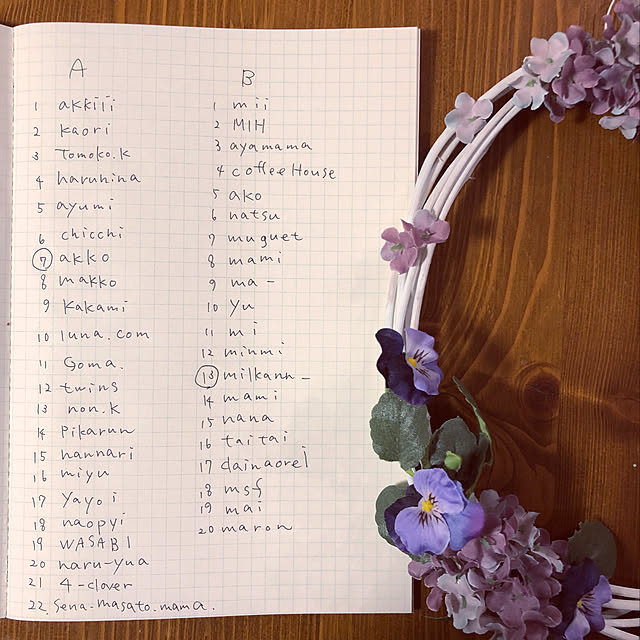 A
1 akkiii
2 kaori
3 Tomoko.K
4 haruhina
5 ayumi
6 chicchi
7 akko
8 makko
9 kakami
10 luna.com
11 Goma.
12 twins
13 non.k
14 Pikarun
15 hannari
16 miyu
17 Yayoi
18 naopyi
19 WASABI
20 naru-yua
21 4-clover
22. Sena.masato.mama.
B
1 mii
2 MIH
3 ayamama
4 coffeeHouse
5 ako
6 natsu
7 muguet
8 mami
9 ma-
10 Yu
11 mi
12 minmi
13 milkann-
14 mami
15 nana
16 taitai
17 dainaorel
18 msf
19 mai
20 maron